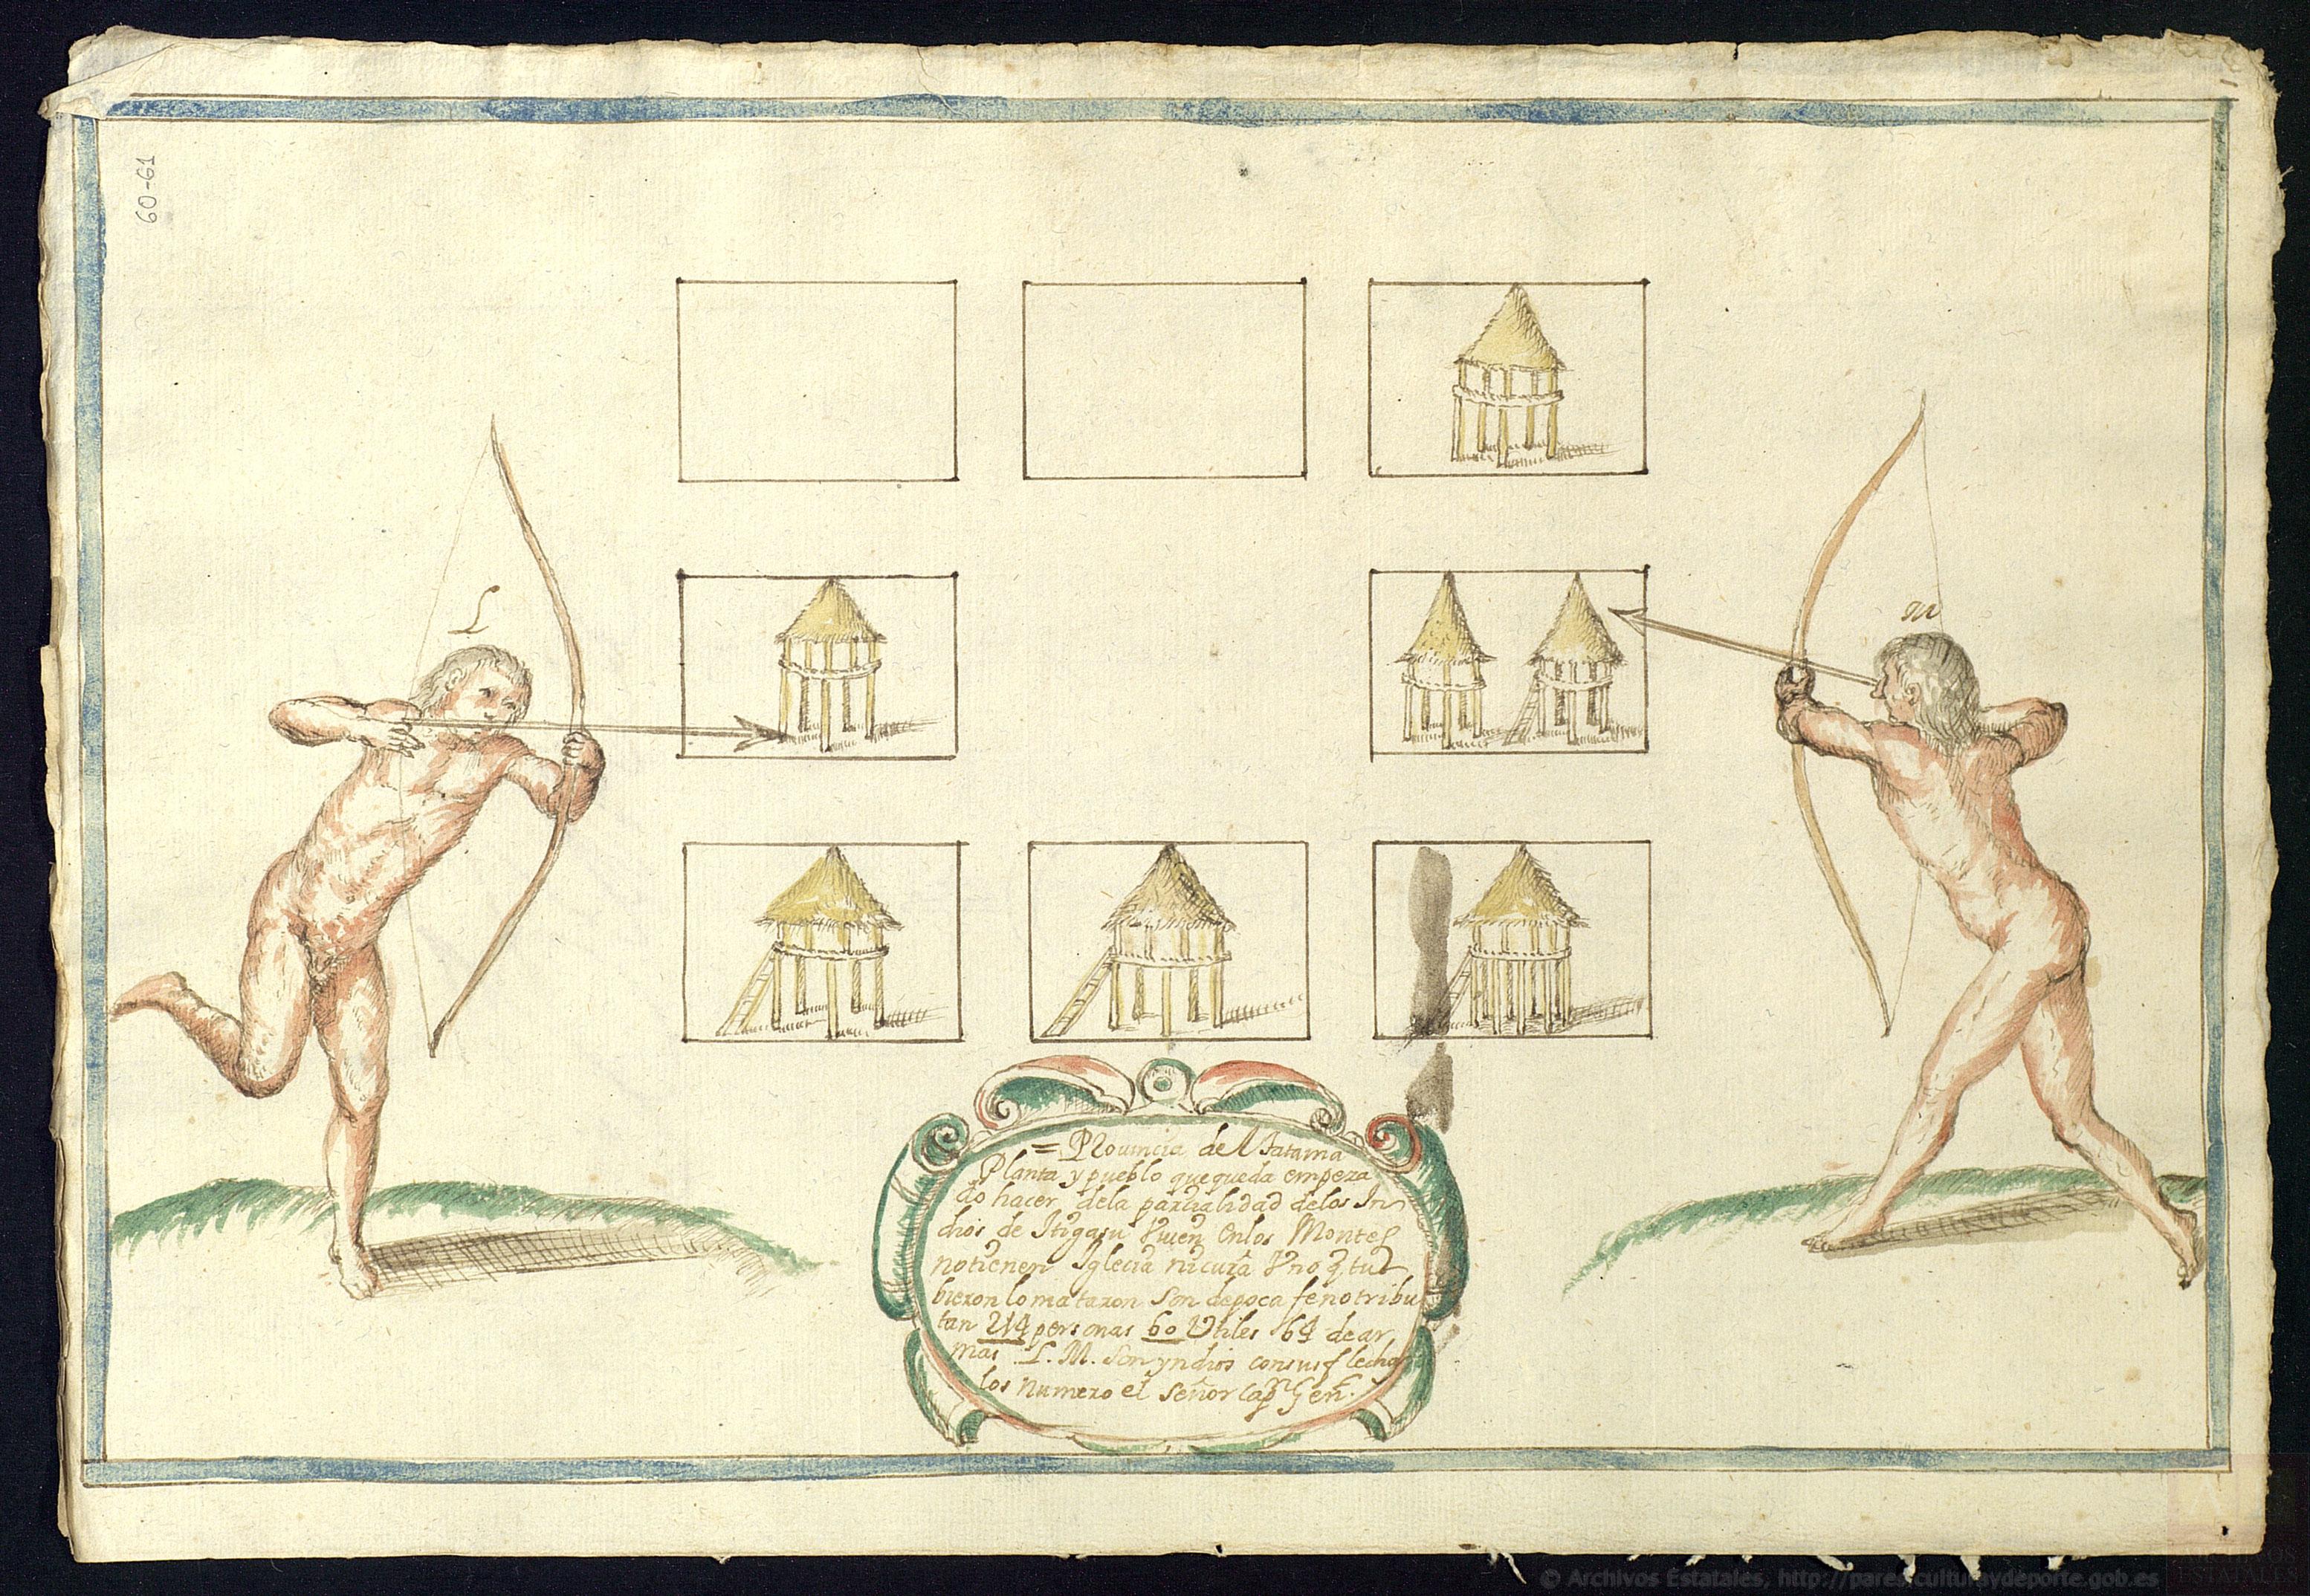 60-61
L
M
= Prouincia de Tatama
Planta y pueblo que queda empeza
do hacer dela parcialidad delos In
dios de Itugasu Viuen en los Montes
no tienen Iglecia ni cura Vno q tu
bieron lo mataron Son de poca fe no tribu
tan 214 personas 60 Vtiles 64 de ar
mas L. M. Son yndios con sus flechas
los numero el Señor Capn Gen.
© Archivos Estatales, http://pares.culturaydeporte.gob.es
ARCHIVOS
ESTATALES